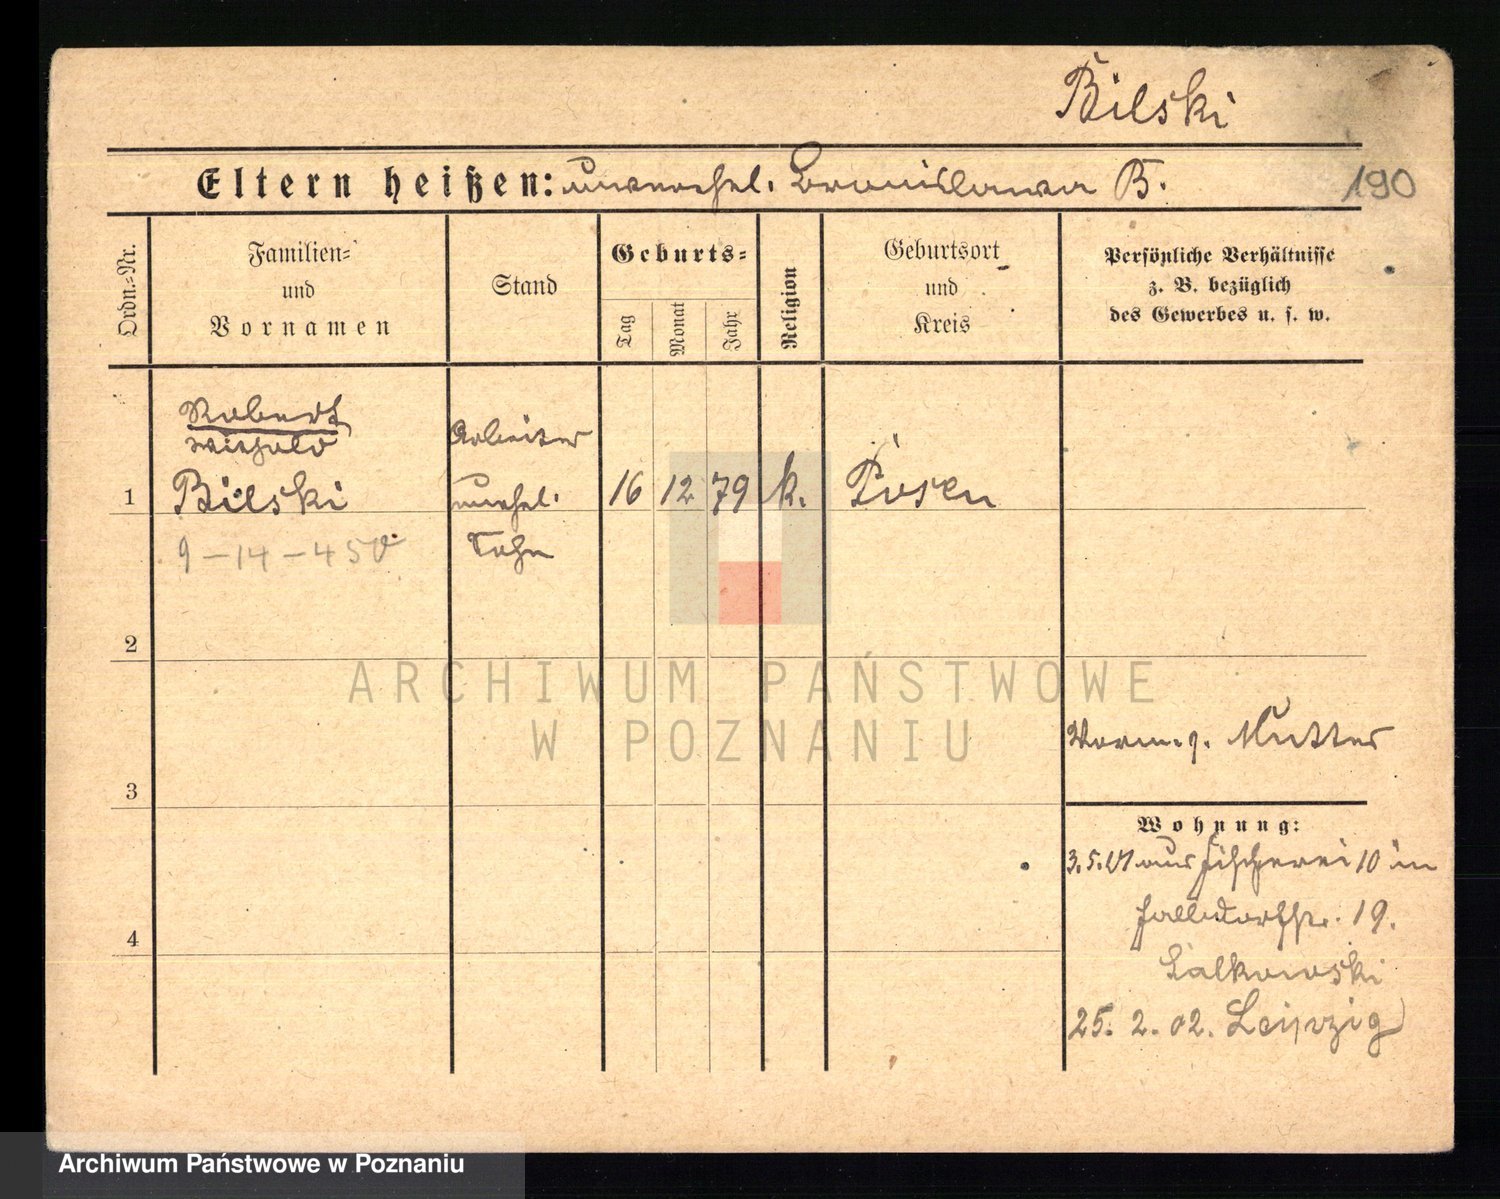 Bilski
Eltern heißen: unverehel. Bronislawa B.
190
Ordn.-Nr.
Familien-
und
Vornamen
Stand
Geburts-
Tag
Monat
Jahr
Religion
Geburtsort
und
Kreis
Persönliche Verhältnisse
z. B. bezüglich
des Gewerbes u. s. w.
Robert
Withold
Arbeiter
1
Bilski
unehel.
16 12 79
k.
Posen
9-14-450
Sohn
2
ARCHIWUM PAŃSTWOWE
W POZNANIU
Mutter
3
Wohnung:
3.5. aus Fischerei 10 in
19.
4
Lalkowski
25. 2. 02. Leipzig
Archiwum Państwowe w Poznaniu